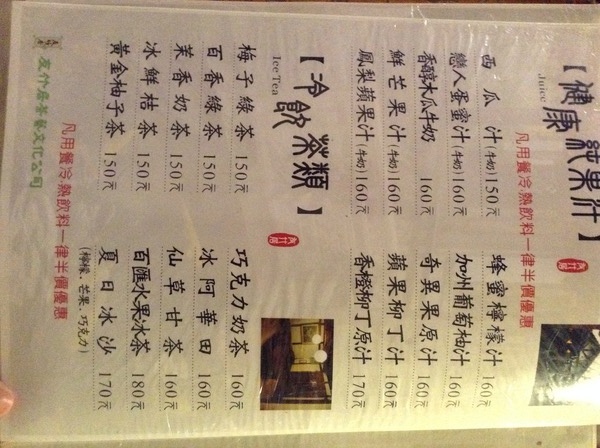 【健康純果汁】
Juice
凡用餐冷熱飲料一律半價優惠
西瓜汁(牛奶)150元
戀人蛋蜜汁(牛奶)160元
香醇木瓜牛奶 160元
鮮芒果汁(牛奶)160元
鳳梨蘋果汁(牛奶)160元
蜂蜜檸檬汁 160元
加州葡萄柚汁 160元
奇異果原汁 160元
蘋果柳丁汁 160元
香橙柳丁原汁 170元
【冷飲茶類】
Ice Tea
梅子綠茶 150元
百香綠茶 150元
茉香奶茶 150元
冰鮮桔茶 150元
黃金柚子茶 150元
巧克力奶茶 160元
冰阿華田 160元
仙草甘茶 160元
百匯水果冰茶 180元
夏日冰沙 170元
(檸檬、芒果、巧克力)
凡用餐冷熱飲料一律半價優惠
友竹居茶藝文化公司